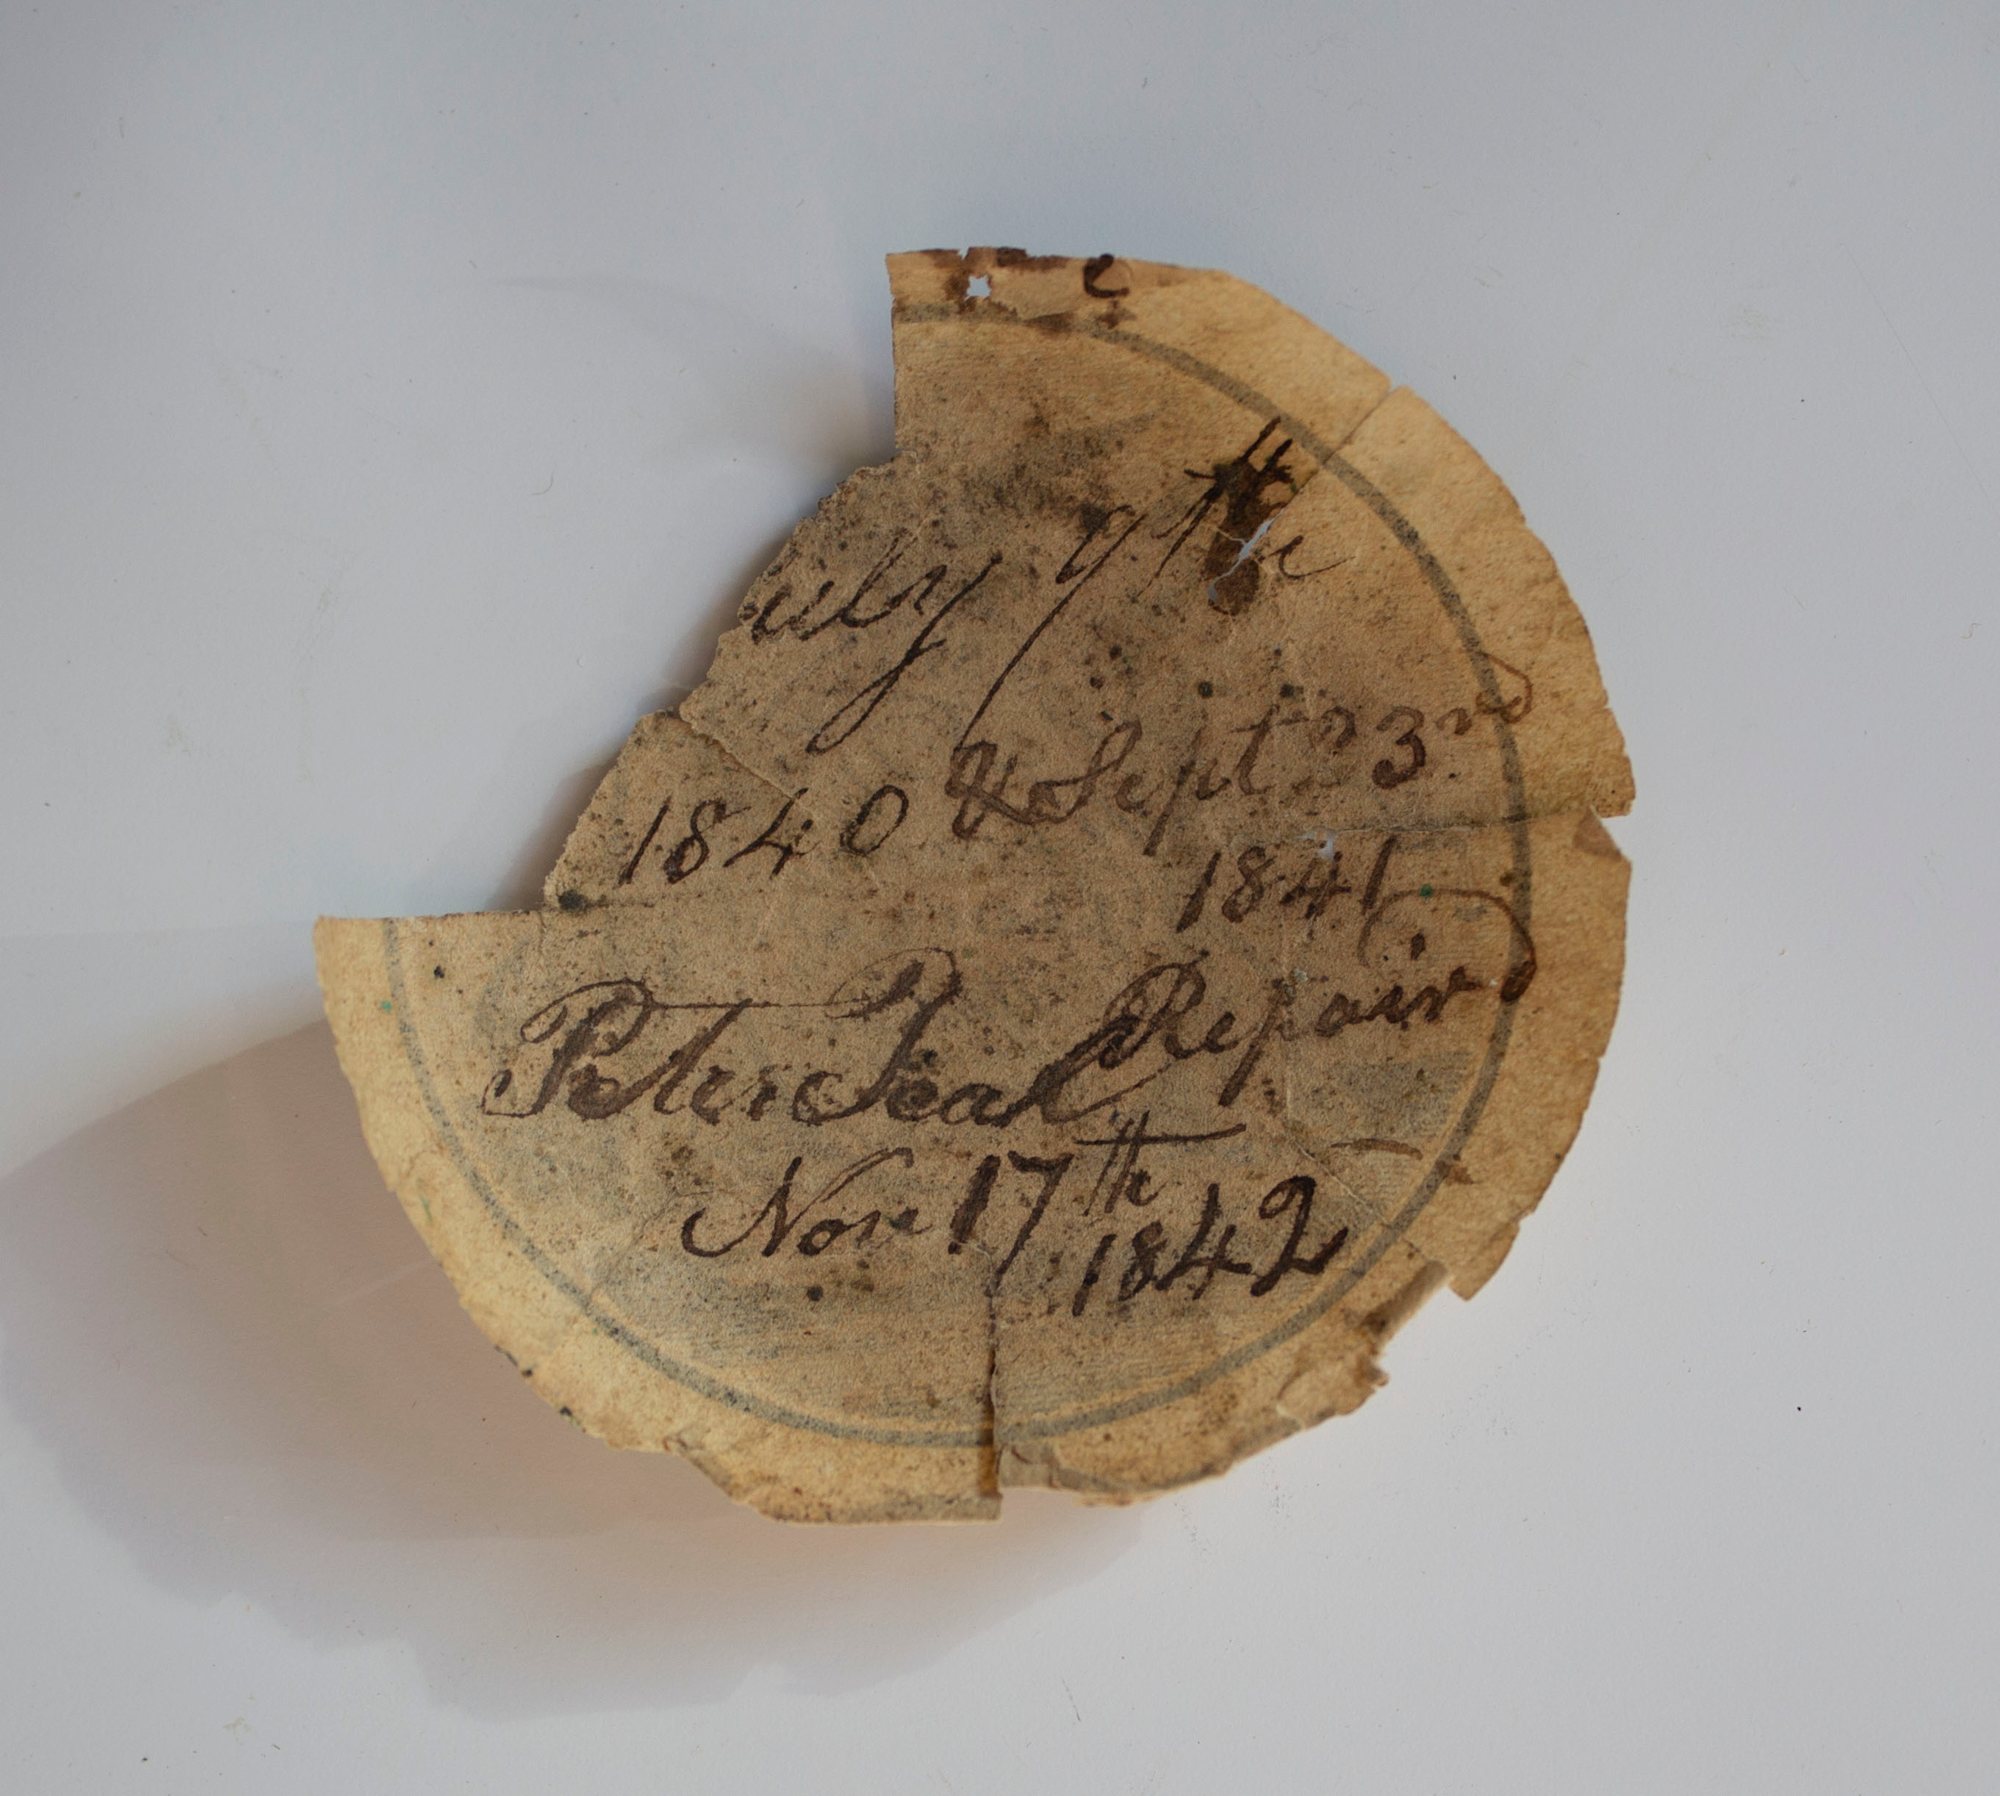 e
uly 9th
1840 & Sept 23rd
1841
Peter Peal Repaird
Nove 17th
1842